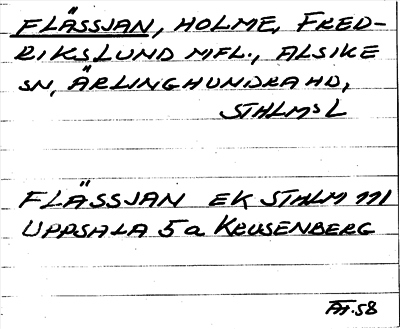 FLÄSSJAN, HOLME, FRED-
RIKSLUND MFL., ALSIKE
SN, ÄRLINGHUNDRA HD,
STHLMS L
FLÄSSJAN EK STHLM 111
UPPSALA 5a KRUSENBERG
AH.58